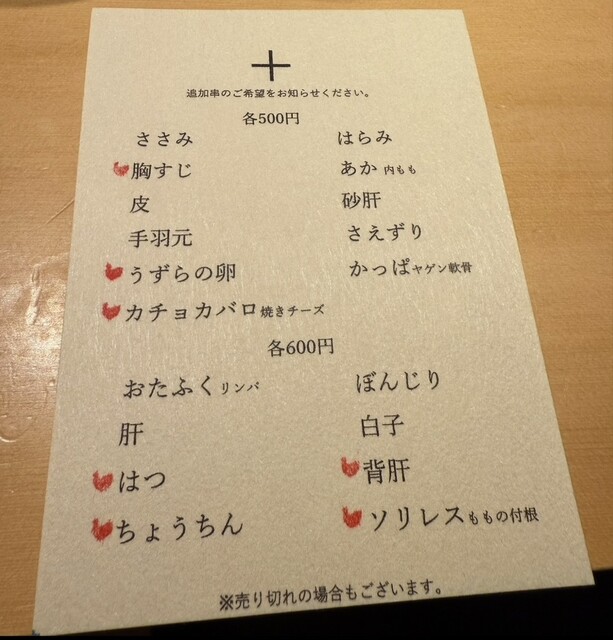 追加串のご希望をお知らせください。
各500円
ささみ はらみ
胸すじ あか 内もも
皮 砂肝
手羽元 さえずり
うずらの卵 かっぱ ヤゲン軟骨
カチョカバロ 焼きチーズ
各600円
おたふく リンパ ぼんじり
肝 白子
はつ 背肝
ちょうちん ソリレス ももの付根
※売り切れの場合もございます。